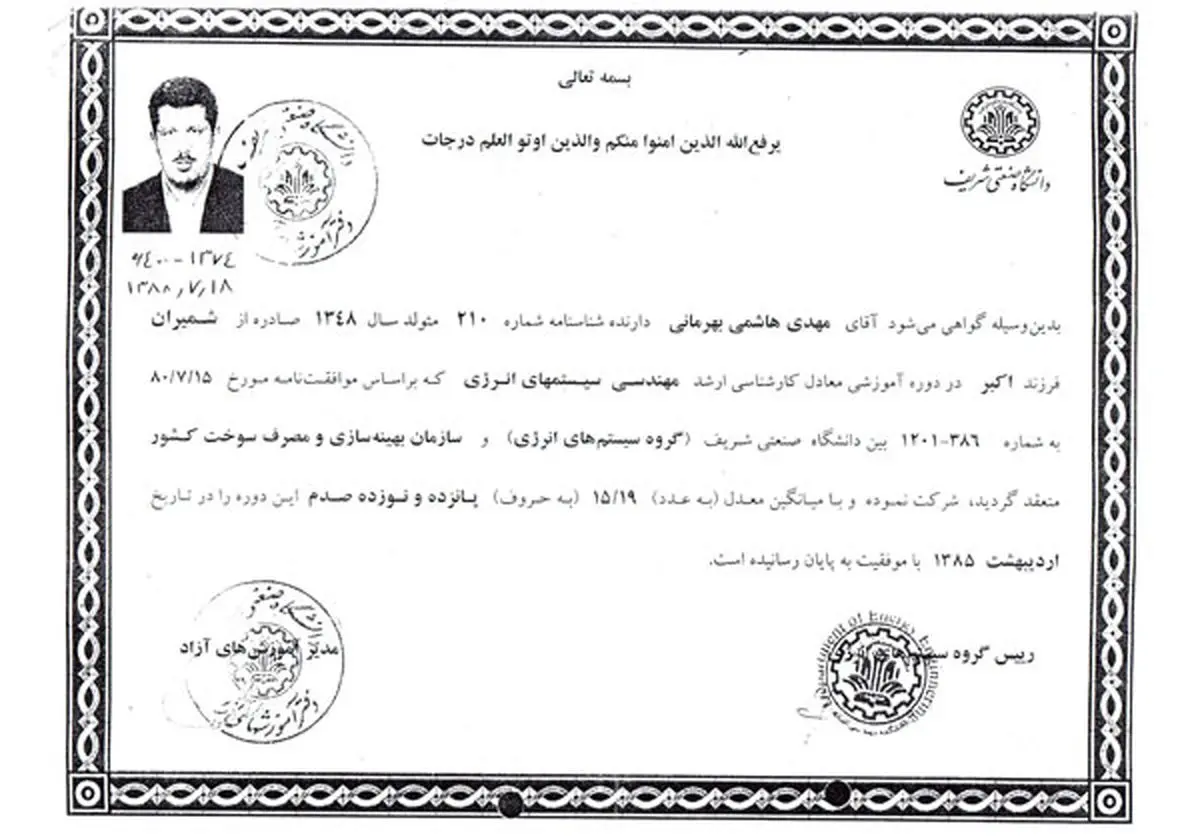 بسمه تعالی
یرفع‌الله الذین امنوا منکم والذین اوتو العلم درجات
دانشگاه صنعتی شریف
دانشگاه صنعتی
دفتر آموزش
۹٤۰۰-۱۳۷٤
۱۳۸۸٫۷٫۱۸
بدین‌وسیله گواهی می‌شود آقای مهدی هاشمی بهرمانی دارنده شناسنامه شماره ۲۱۰ متولد سال ۱۳٤۸ صادره از شمیران
فرزند اکبر در دوره آموزشی معادل کارشناسی ارشد مهندسی سیستمهای انرژی که براساس موافقت‌نامه مورخ ۸۰/۷/۱۵
به شماره ۱۲۰۱-۳۸۶ بین دانشگاه صنعتی شریف (گروه سیستم‌های انرژی) و سازمان بهینه‌سازی و مصرف سوخت کشور
منعقد گردید، شرکت نموده و با میانگین معدل (به عدد) ۱۵/۱۹ (به حروف) پانزده و نوزده صدم این دوره را در تاریخ
اردیبهشت ۱۳۸۵ با موفقیت به پایان رسانیده است.
رییس گروه سیستم‌های انرژی
Department of Energy Engineering
مدیر آموزش‌های آزاد
دانشگاه صنعتی
دفتر آموزشهای